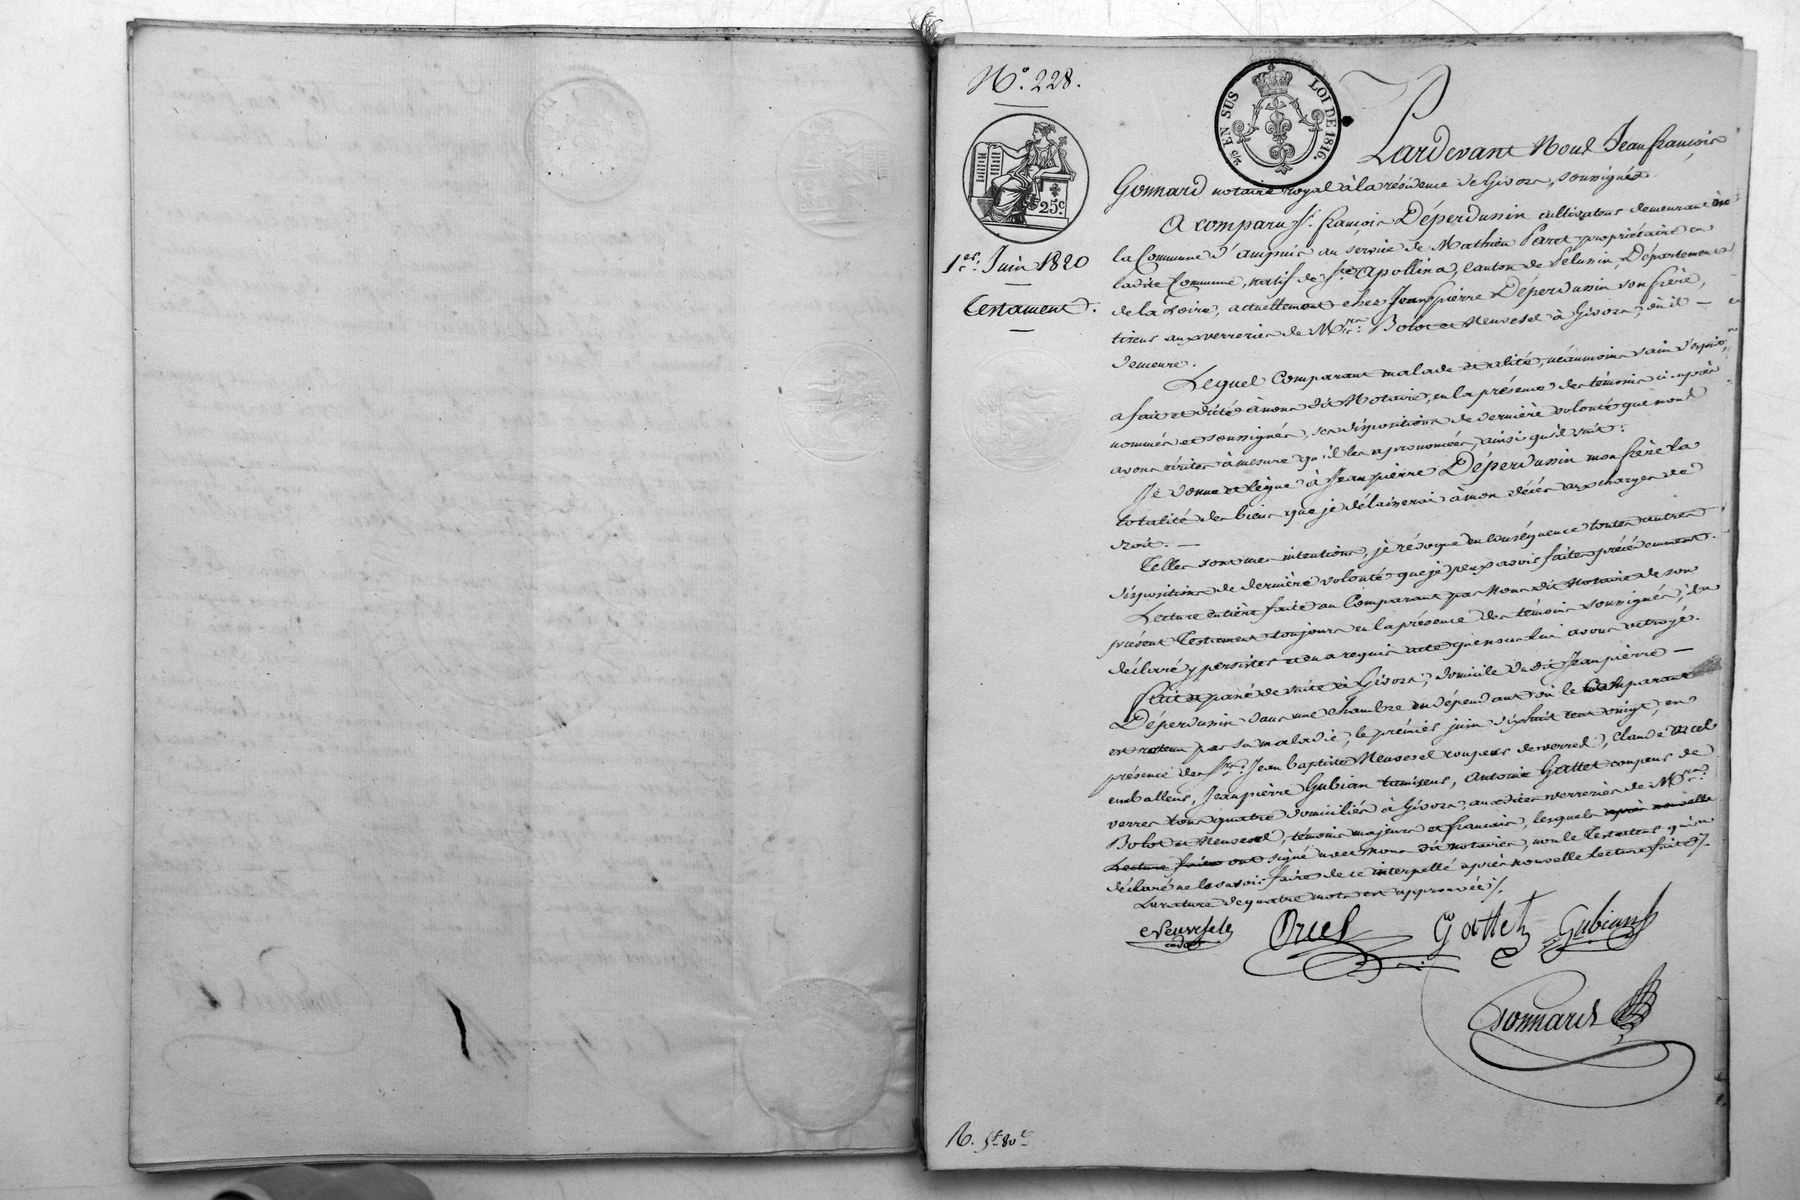 N.o 228.
EN SUS
LOI DE 1816.
25c.
1.er Juin 1820
Testament.
Pardevant Nous Jean françois
Gonnard notaire royal à la résidence de Givors, soussigné
A comparu Sr. françois Déperdussin cultivateur demeurant en
la Commune d'ampuis au service de Mathieu Paret propriétaire en
ladite Commune, natif de Ste Apollina, Canton de Pelussin, Département
de la Loire, actuellement chez Jean pierre Déperdussin son frère,
tiseur aux verreries de Mrs. Bolot et Neuvesel à Givors, où il —
demeure.
Lequel Comparant malade et alité, néanmoins sain d'esprit,
a fait et dicté à nous dit Notaire, en la présence des témoins ci-après
nommés et soussignés, ses dispositions de dernière volonté que nous
avons écrites à mesure qu'il les a prononcées, ainsi qu'il suit:
Je donne et lègue à Jean pierre Déperdussin mon frère la
totalité des biens que je délaisserai à mon décès aux charges de
droit. —
Telles sont mes intentions, je révoque en conséquence toutes autres
dispositions de dernière volonté que je peux avoir faites précédemment.
Lecture entière faite au Comparant par Nous dit Notaire de son
présent Testament toujours en la présence des témoins soussignés, il a
déclaré y persister et en a requis acte que nous lui avons octroyé.
Fait et passé de suite à Givors, domicile du dit Jean pierre —
Déperdussin dans une chambre en dépendant où le Comparant
est retenu par sa maladie, le premier juin dix huit cent vingt, en
présence des Srs. Jean baptiste Neuvesel coupeur de verres, Claude Oriel
emballeur, Jean pierre Gubian tamiseur, Antoine Gattet coupeur de
verres tous quatre domiciliés à Givors, aux dites verreries de Mrs.
Bolot et Neuvesel, témoins majeurs et français, lesquels après nouvelle
Lecture faite ont signé avec nous dit notaire, non le Testateur qui a
déclaré ne le savoir faire de ce interpellé après nouvelle Lecture faite /.
La rature de quatre mots est approuvée /.
Neuvesel
cadet
Oriel
Gattet
Gubian
Gonnard
R. 5f 80c